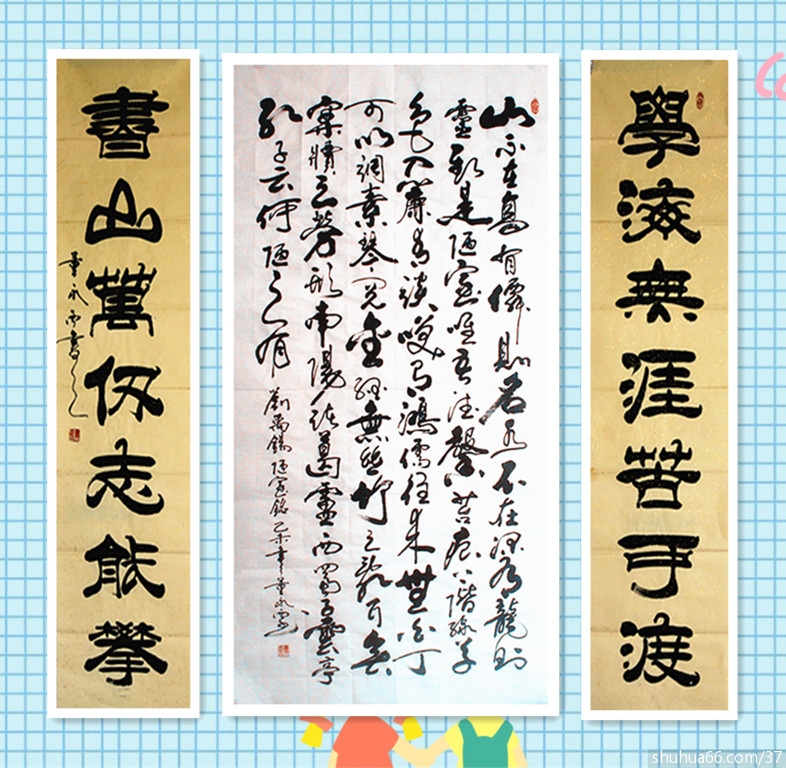 學海無涯苦可渡
山不在高有僊則名水不在深有龍則
靈斯是陋室唯吾德馨苔痕上階綠草
色入簾青談笑有鴻儒往來無白丁
可以調素琴閱金經無絲竹之亂耳無
案牘之勞形南陽諸葛廬西蜀子雲亭
孔子云何陋之有
劉禹錫陋室銘乙未年董永
書山萬仞志能攀
董永
shuhua66.com/37